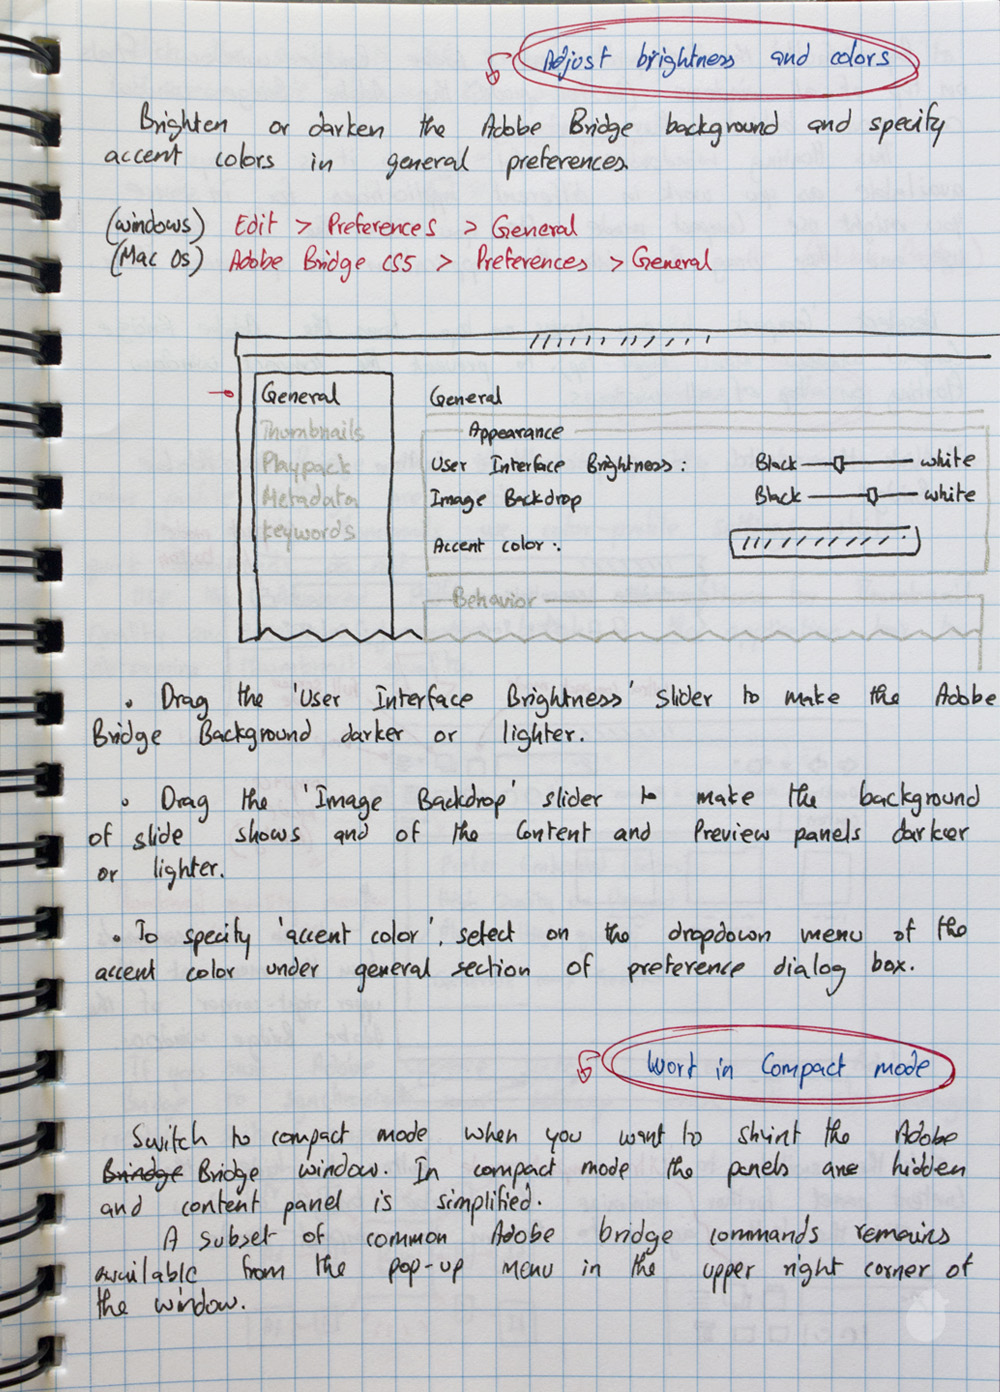 Adjust brightness and colors
Brighten or darken the Adobe Bridge background and specify
accent colors in general preferences.
(windows) Edit > Preferences > General
(Mac Os) Adobe Bridge CS5 > Preferences > General
General
Thumbnails
Playpack
Metadata
keywords
General
Appearance
User Interface Brightness : Black white
Image Backdrop Black white
Accent color :.
Behavior
• Drag the 'User Interface Brightness' slider to make the Adobe
Bridge Background darker or lighter.
• Drag the 'Image Backdrop' slider to make the background
of slide shows and of the Content and Preview panels darker
or lighter.
• To specify 'accent color', select on the dropdown menu of the
accent color under general section of preference dialog box.
Work in Compact mode
Switch to compact mode when you want to shrink the Adobe
Bridge Bridge window. In compact mode the panels are hidden
and content panel is simplified.
A subset of common Adobe bridge commands remains
available from the pop-up menu in the upper right corner of
the window.